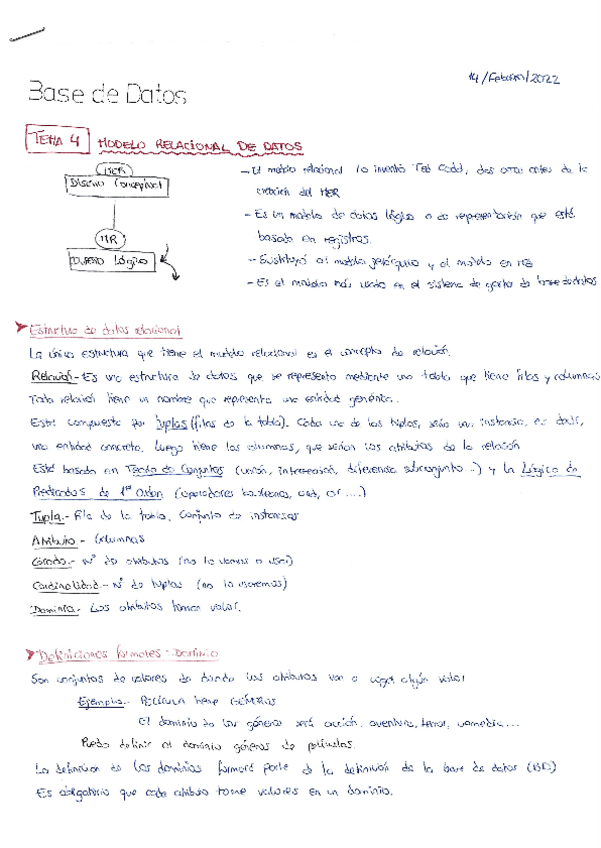 14/Febrero/2022
Base de Datos
TEMA 4 MODELO RELACIONAL DE DATOS
MER
Diseño Conceptual
MR
Diseño Lógico
- El modelo relacional lo inventó Ted Codd, dos años antes de la
creación del MER
- Es un modelo de datos lógico o de representación que está
basado en registros.
- Sustituyó al modelo jerárquico y al modelo en red
- Es el modelo más usado en el sistema de gestor de base de datos
Estructura de datos relacional
La única estructura que tiene el modelo relacional es el concepto de relación.
Relación.- Es una estructura de datos que se representa mediante una tabla que tiene filas y columnas
Toda relación tiene un nombre que representa una entidad genérica.
Está compuesta por tuplas (filas de la tabla). Cada una de las tuplas, sería una instancia, es decir,
una entidad concreta. Luego tiene las columnas, que serían los atributos de la relación
Está basado en Teoría de Conjuntos (unión, intersección, diferencia subconjunto..) y la Lógica de
Predicados de 1er Orden (operadores booleanos, and, or ....)
Tupla.- Fila de la tabla. Conjunto de instancias
Atributo.- Columnas
Grado.- Nº de atributos (no lo vamos a usar)
Cardinalidad.- Nº de tuplas (no la usaremos)
Dominio.- Los atributos toman valor.
Definiciones formales: Dominio
Son conjuntos de valores de donde los atributos van a coger algún valor
Ejemplo.- PELÍCULA tiene GÉNEROS
El dominio de los géneros será acción, aventura, terror, comedia...
Puedo definir el dominio géneros de películas.
La definición de los dominios formará parte de la definición de la base de datos (BD)
Es obligatorio que cada atributo tome valores en un dominio.